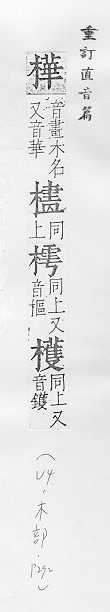 重訂直音篇
樺
音畫木名
又音華
同
上
樗
同上又
音樞
檴
同上又
音鑊
(V4·木部·P292)